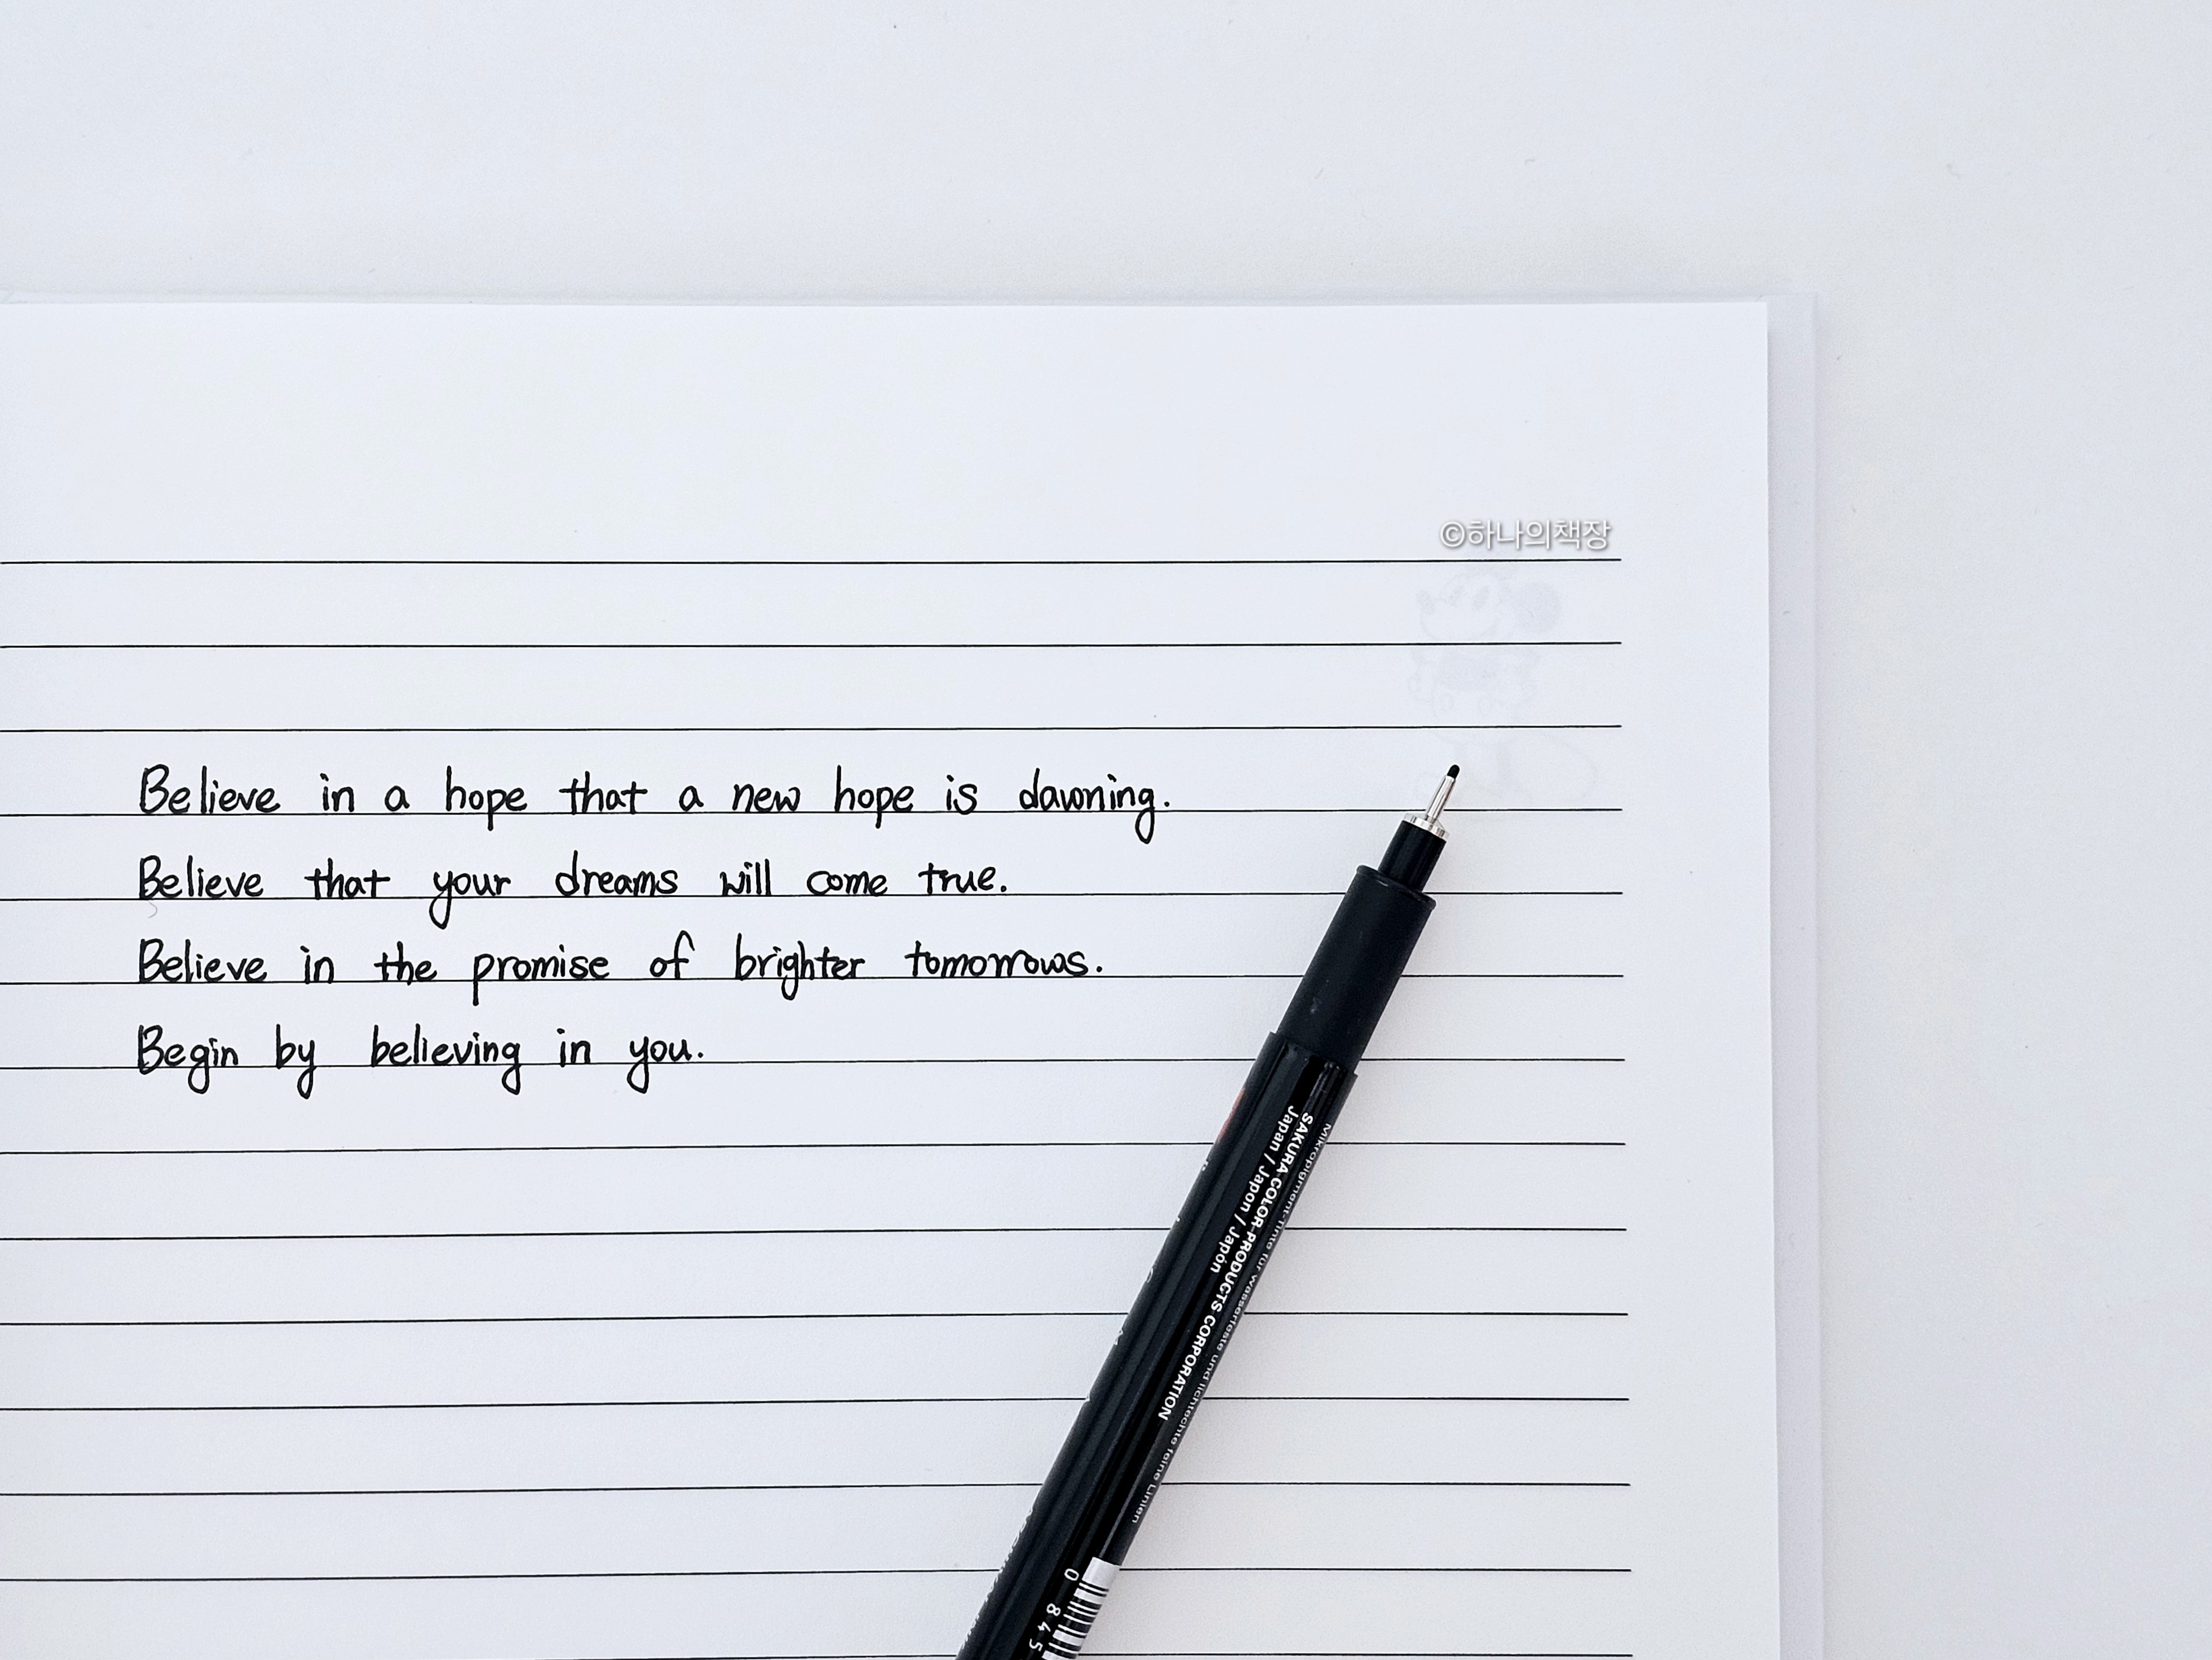 ©하나의책장
Believe in a hope that a new hope is dawning.
Believe that your dreams will come true.
Believe in the promise of brighter tomorrows.
Begin by believing in you.
Mikropigment-Tinte für wasserfeste und lichtechte feine Linien
SAKURA COLOR PRODUCTS CORPORATION
Japan / Japon / Japón
0 845